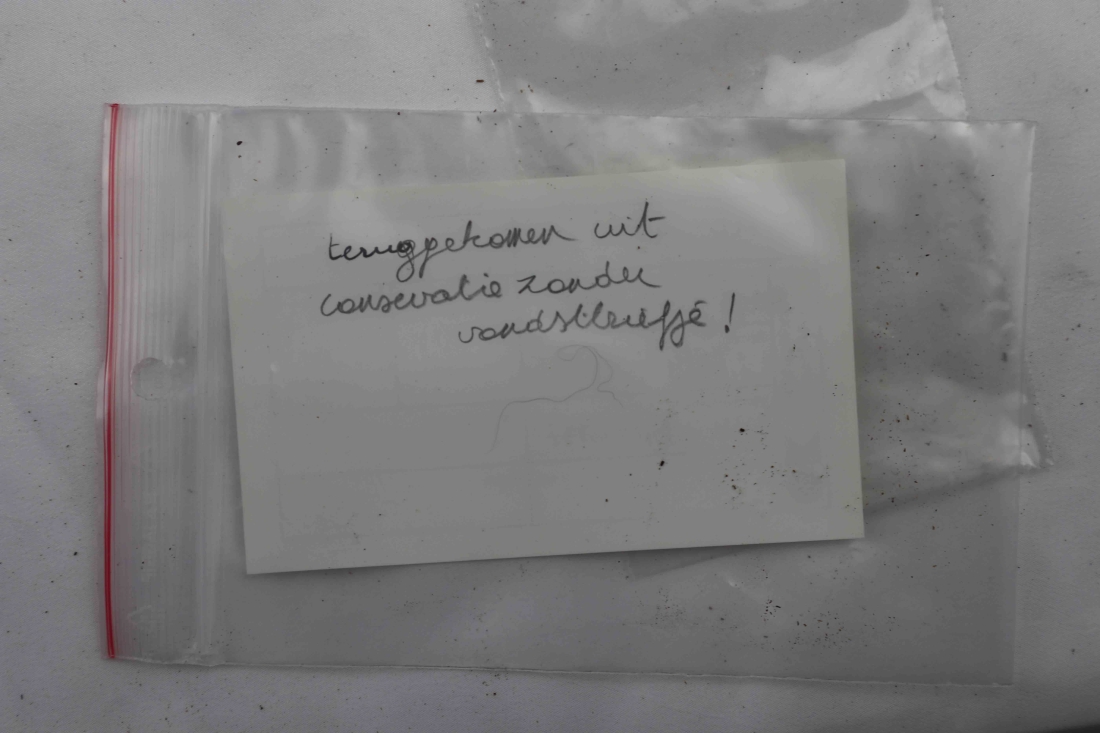 teruggekomen uit
conservatie zonder
vondststrukje!